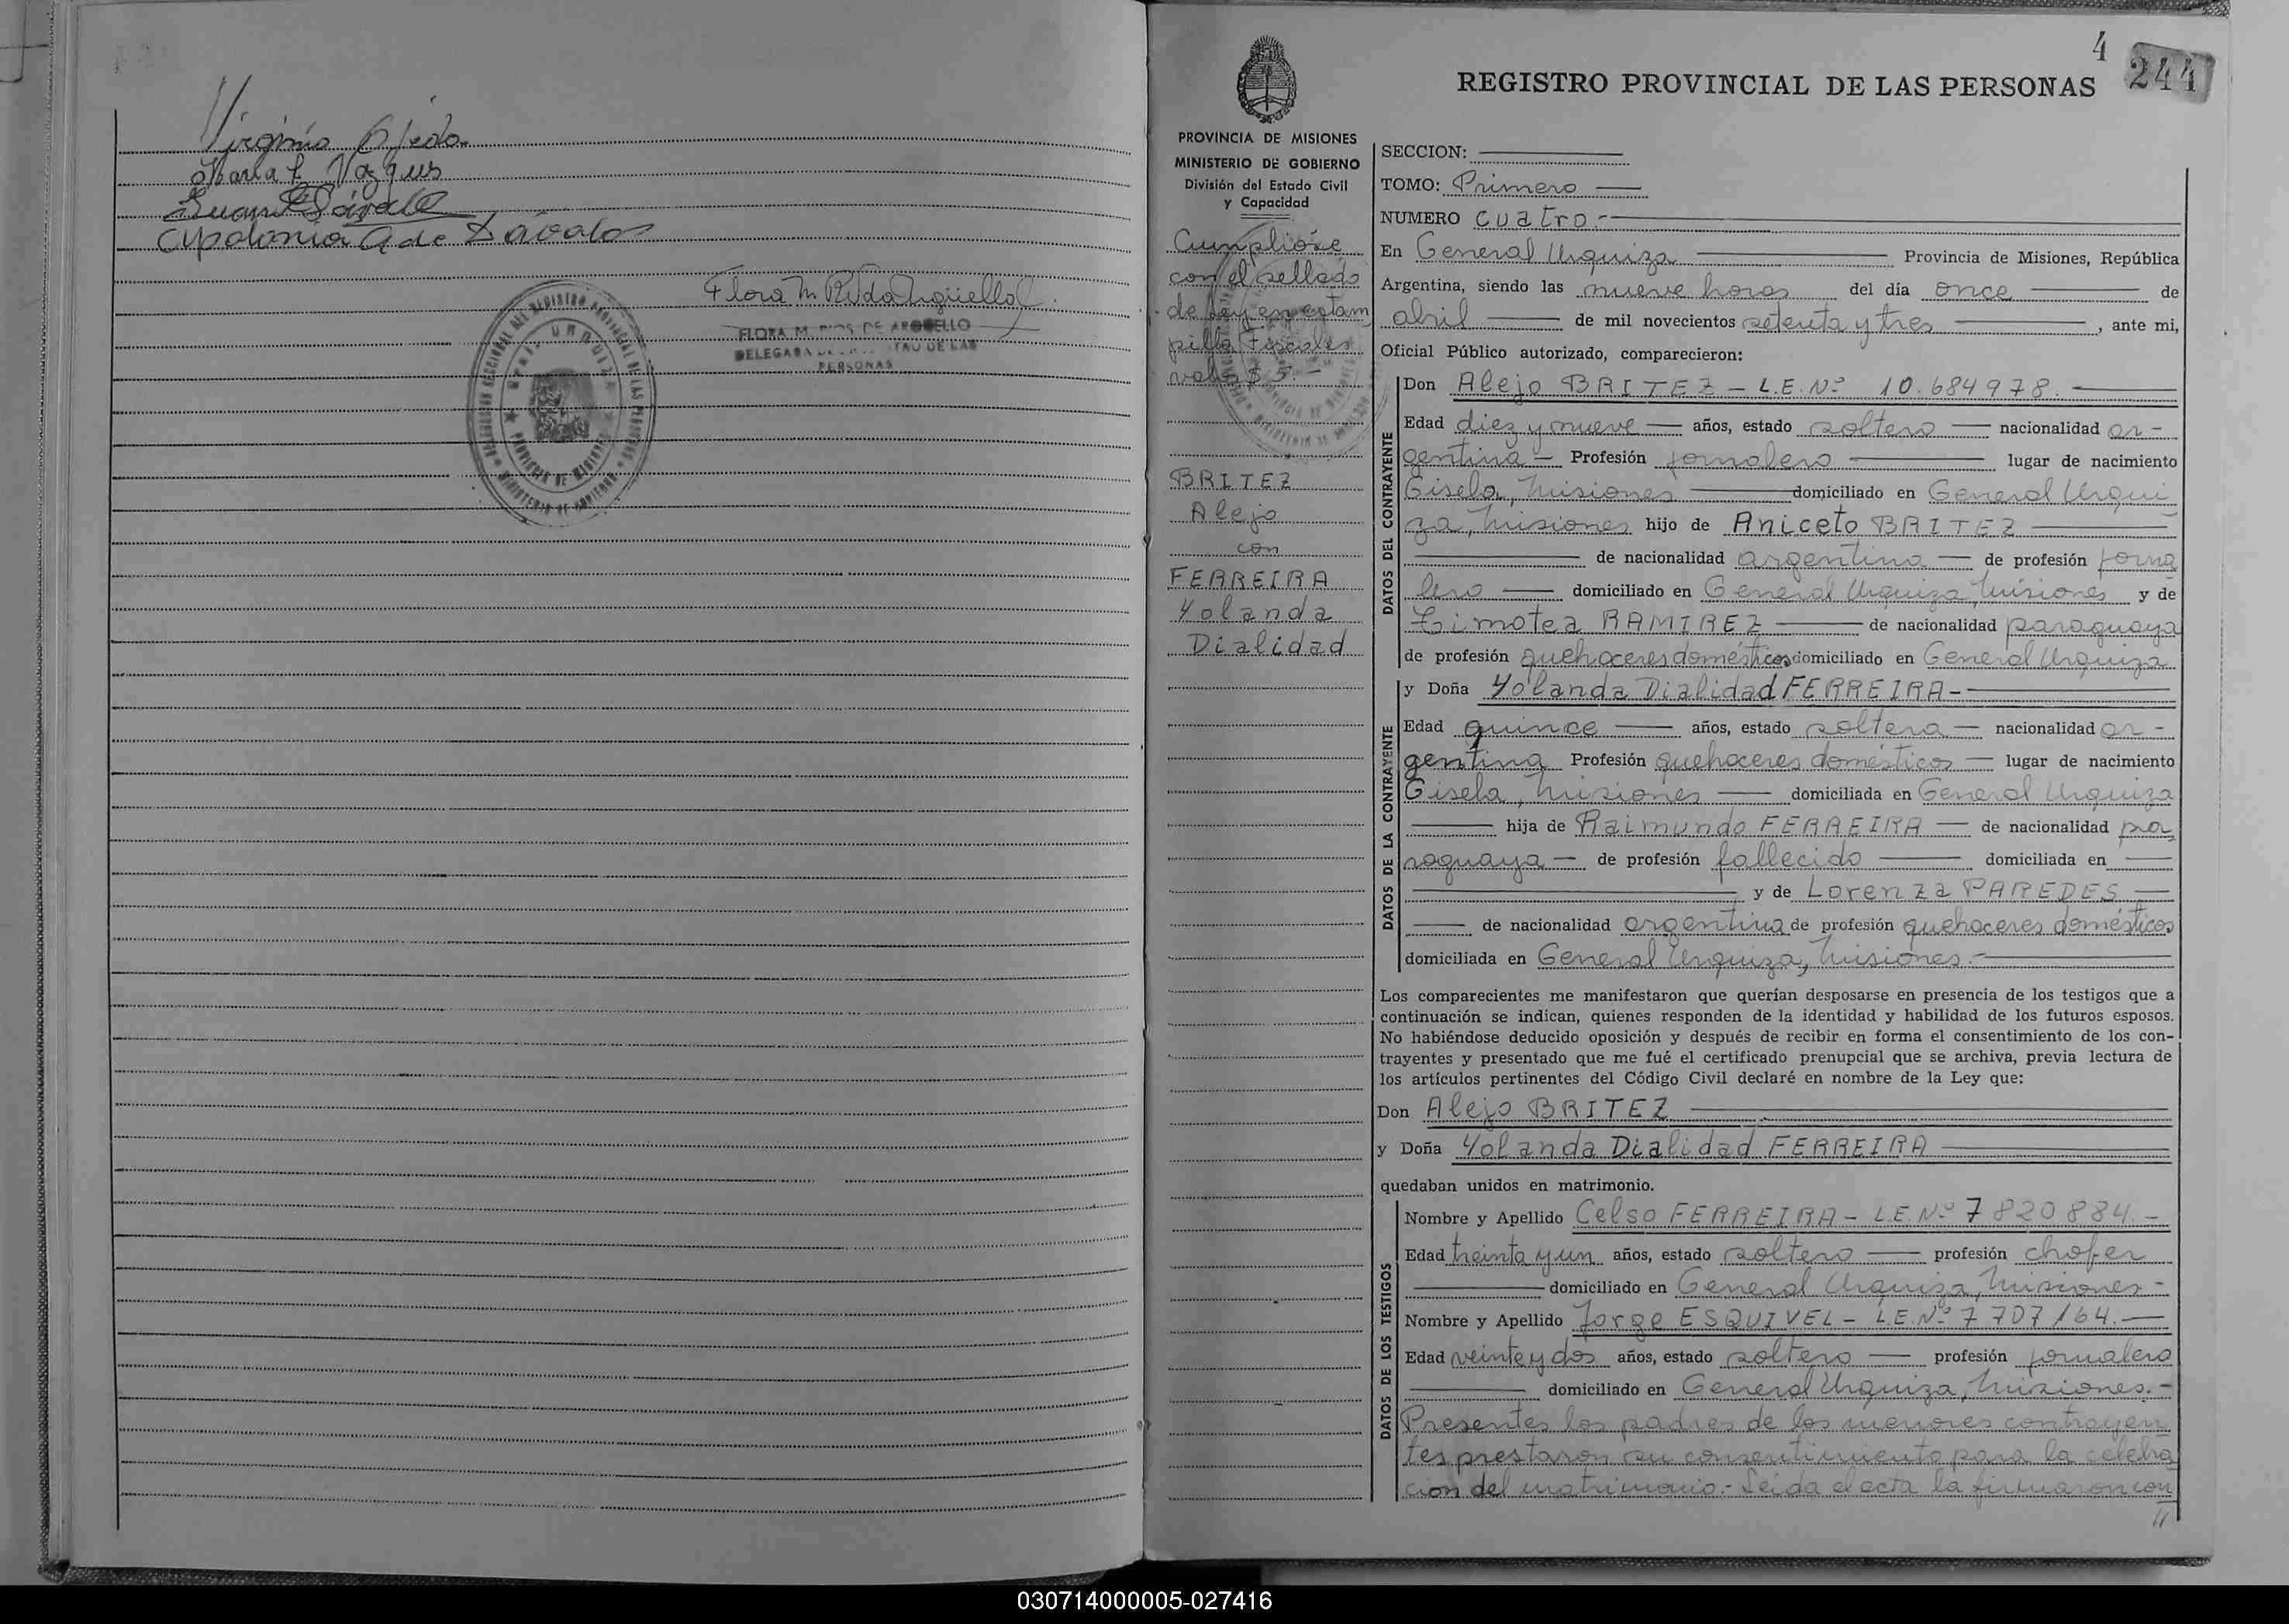 Virginio Ojeda
Marta F. Vazques
Juan
Apolonia G de Dávalos
Flora M R. de Argüello
FLORA M. RIOS DE ARGUELLO
DELEGADA
PERSONAS
PROVINCIA DE MISIONES
4
244
REGISTRO PROVINCIAL DE LAS PERSONAS
PROVINCIA DE MISIONES
MINISTERIO DE GOBIERNO
División del Estado Civil
y Capacidad
Cumplióse
con el sellado
de ley en estam
pilla fiscales
valor $ 5.-
BRITEZ
Alejo
con
FERREIRA
Yolanda
Dialidad
SECCION:
TOMO: Primero
NUMERO cuatro.-
En General Urquiza Provincia de Misiones, República
Argentina, siendo las nueve horas del día once de
abril de mil novecientos setenta y tres, ante mi,
Oficial Público autorizado, comparecieron:
DATOS DEL CONTRAYENTE
Don Alejo BRITEZ - L.E. Nº 10.684978.
Edad diez y nueve años, estado soltero nacionalidad ar-
gentina Profesión jornalero lugar de nacimiento
Gisela, Misiones domiciliado en General Urqui
za, Misiones hijo de Aniceto BRITEZ
de nacionalidad argentina de profesión jorna
lero domiciliado en General Urquiza, Misiones y de
Timotea RAMIREZ de nacionalidad paraguaya
de profesión quehaceres domésticos domiciliado en General Urquiza
DATOS DE LA CONTRAYENTE
y Doña Yolanda Dialidad FERREIRA-
Edad quince años, estado soltera nacionalidad ar-
gentina Profesión quehaceres domésticos lugar de nacimiento
Gisela, Misiones domiciliada en General Urquiza
hija de Raimundo FERREIRA de nacionalidad pa
raguaya de profesión fallecido domiciliada en
y de Lorenza PAREDES
de nacionalidad argentina de profesión quehaceres domésticos
domiciliada en General Urquiza, Misiones.-
Los comparecientes me manifestaron que querían desposarse en presencia de los testigos que a
continuación se indican, quienes responden de la identidad y habilidad de los futuros esposos.
No habiéndose deducido oposición y después de recibir en forma el consentimiento de los con-
trayentes y presentado que me fué el certificado prenupcial que se archiva, previa lectura de
los artículos pertinentes del Código Civil declaré en nombre de la Ley que:
Don Alejo BRITEZ
y Doña Yolanda Dialidad FERREIRA
quedaban unidos en matrimonio.
DATOS DE LOS TESTIGOS
Nombre y Apellido Celso FERREIRA - L.E. Nº 7 820884.-
Edad treinta y un años, estado soltero profesión chofer
domiciliado en General Urquiza, Misiones-
Nombre y Apellido Jorge ESQUIVEL - L.E. Nº 7 707164.
Edad veinte y dos años, estado soltero profesión jornalero
domiciliado en General Urquiza, Misiones.-
Presentes los padres de los menores contrayen
tes prestaron su consentimiento para la celebra
ción del matrimonio.- Leida el acta la firmaron con
//
030714000005-027416